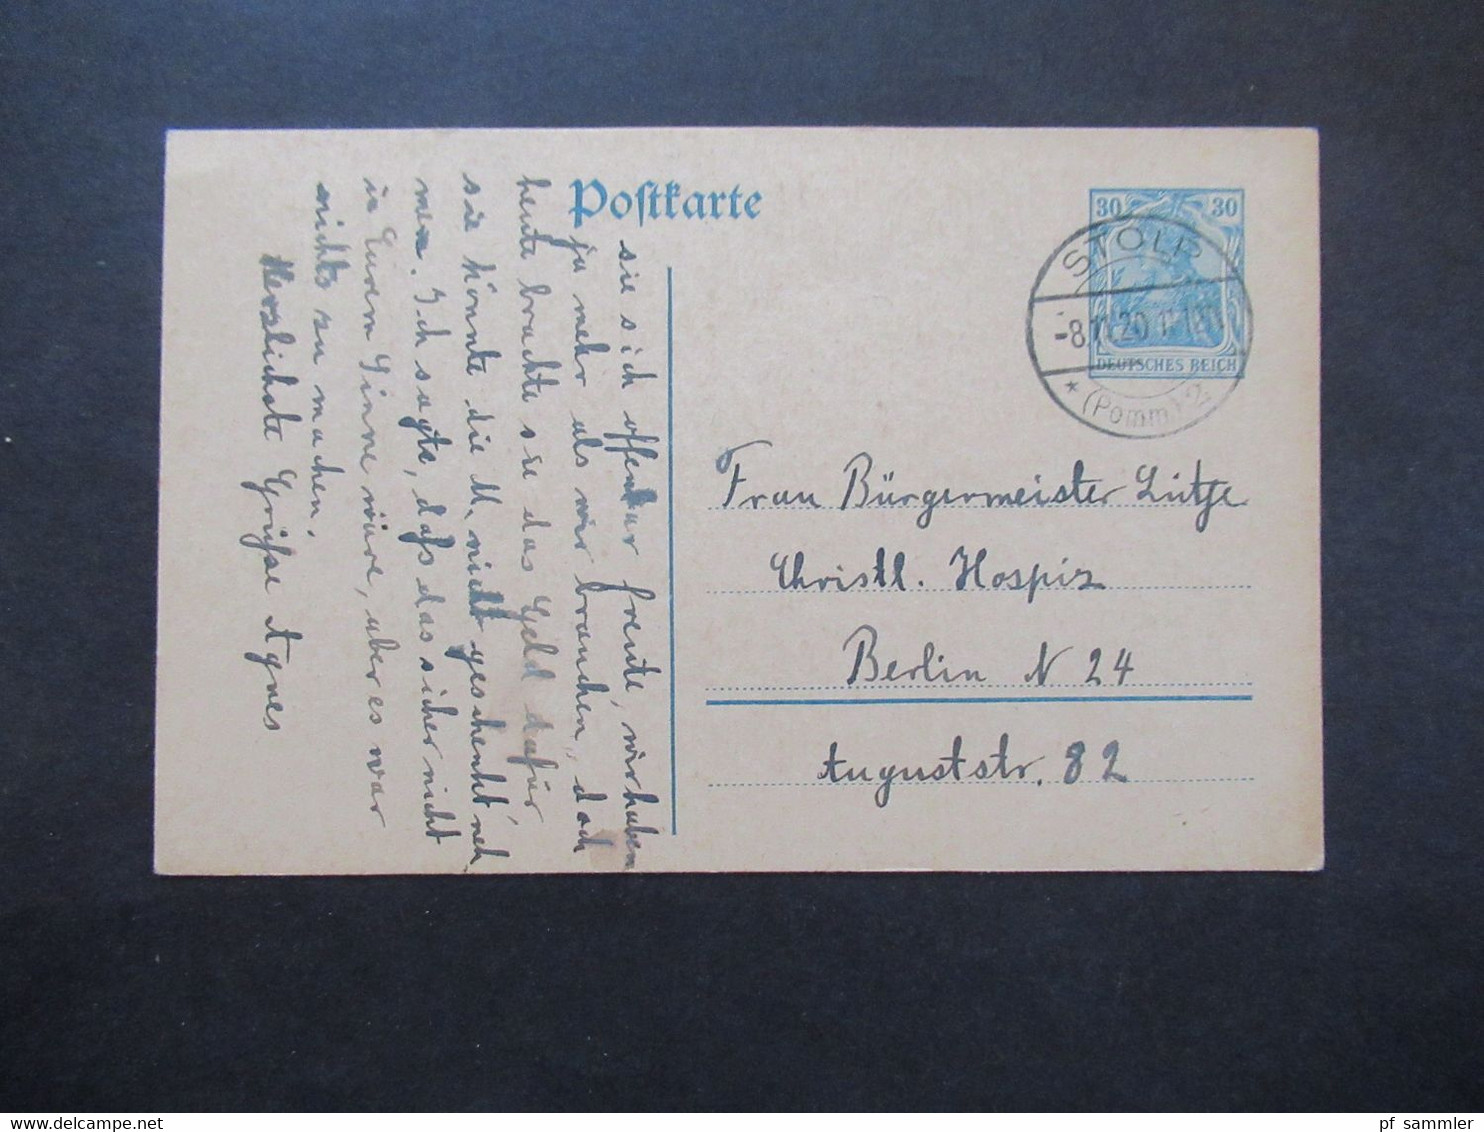 Postkarte
30 30
DEUTSCHES REICH
STOLP
-8.11.20
* (Pomm.) 2
Frau Bürgermeister Lütje
Christl. Hospiz
Berlin N 24
Auguststr. 82
sie sich offenbar freute, wir haben
ja mehr als wir brauchen, doch
heute brachte sie das Geld dafür
sie könnte die M. nicht geschenkt neh
men. Ich sagte, dass das sicher nicht
in Eurem Sinne wäre, aber es war
nichts zu machen.
Herzlichste Grüsse Agnes
www.delcampe.net
pf sammler